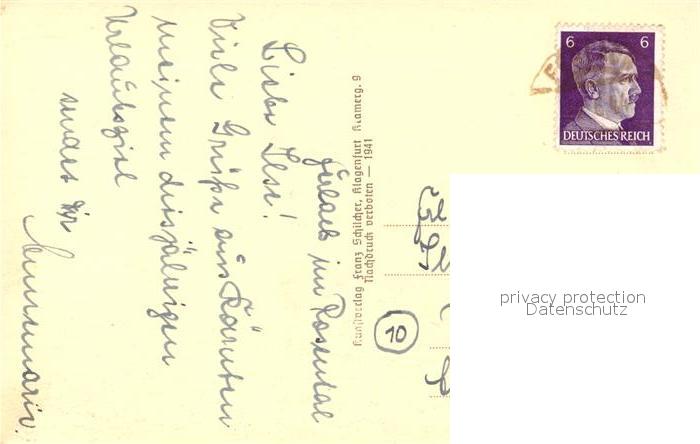 Ferlach im Rosental
Liebe Ilse!
Viele Grüße aus Kärnten
meinem diesjährigen
Urlaubsziel
sendet Dir
Annemarie.
Kunstverlag Franz Schilcher, Klagenfurt Kramerg. 9
Nachdruck verboten — 1941
6 6
DEUTSCHES REICH
Frl
10
privacy protection
Datenschutz